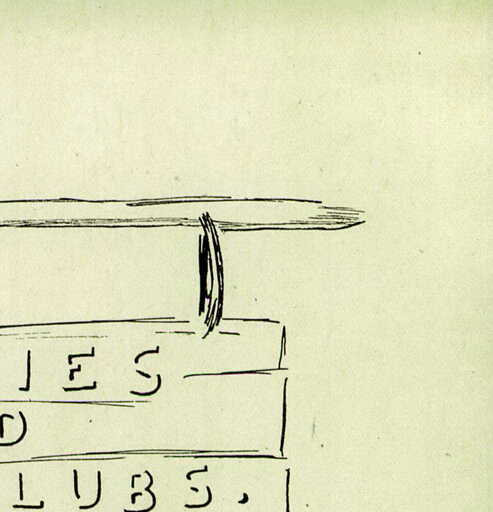 IES
D
LUBS.